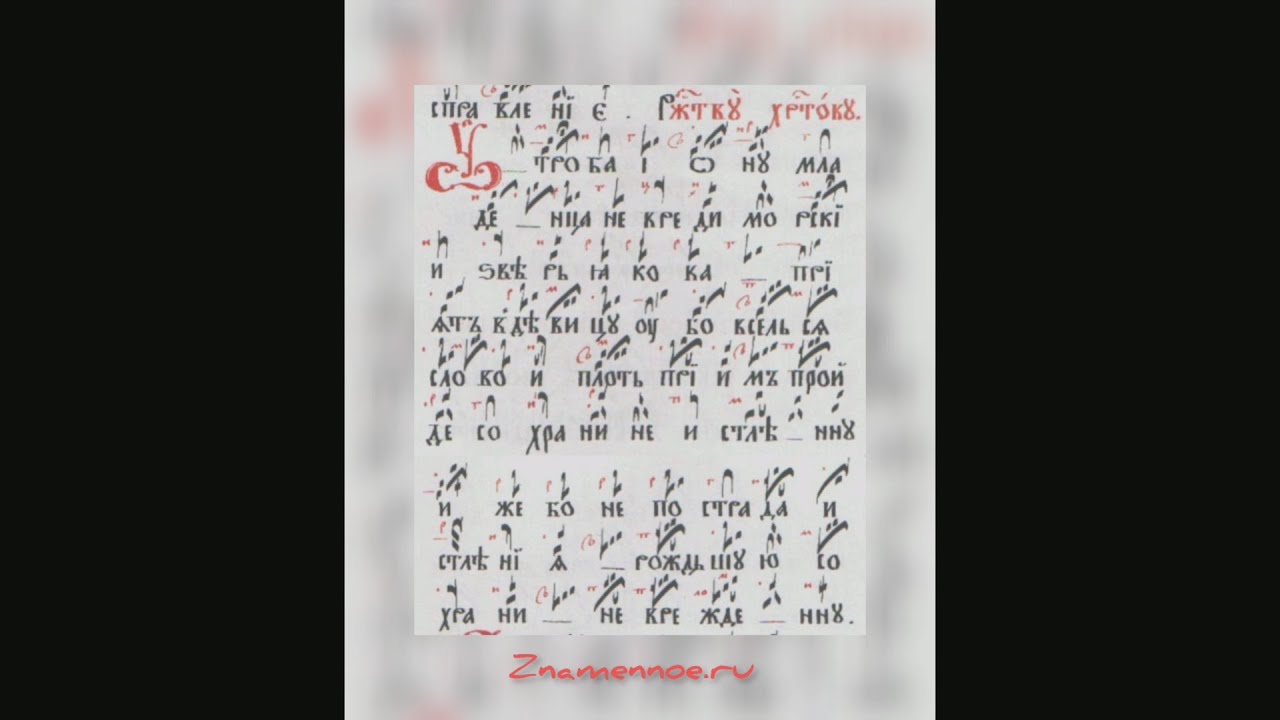 спра вле нї є . Рж҃твꙋ̀ хрⷭ҇то́вꙋ.
Ѹ _ тро ба і ѡ нꙋ мла
де _ нца не вре ди мо рскї
и ѕвѣ рь ꙗ ко ва _ прї
ѧтъ в дѣ ви цꙋ оу бо вселъ сѧ
сло во и плоть прї и мъ прой
де со хра ни не и стлѣ _ ннꙋ
и же бо не по стра да и
стлѣ нї ѧ _ рождь шꙋ ю со
хра ни _ не вре жде _ ннꙋ.
Znamennoe.ru